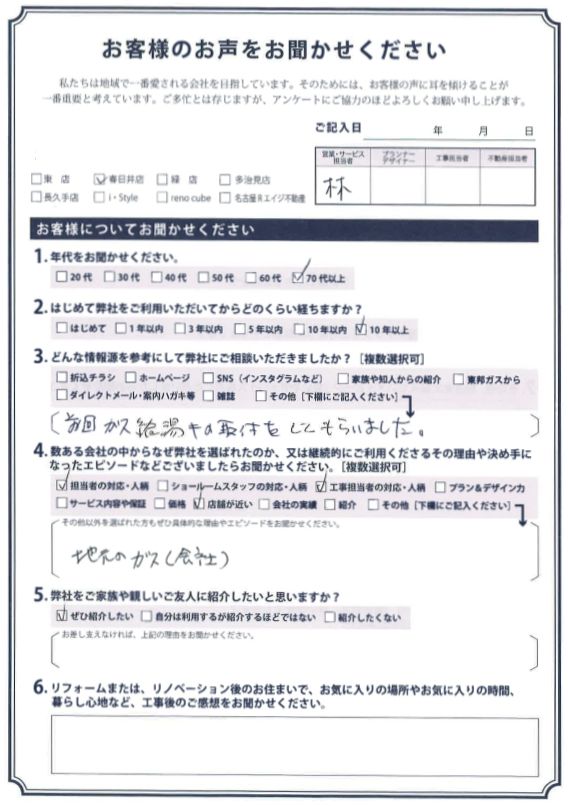 お客様のお声をお聞かせください
私たちは地域で一番愛される会社を目指しています。そのためには、お客様の声に耳を傾けることが
一番重要と考えています。ご多忙とは存じますが、アンケートにご協力のほどよろしくお願い申し上げます。
ご記入日 年 月 日
営業・サービス担当者 プランナーデザイナー 工事担当者 不動産担当者
林
□東 店 ☑春日井店 □緑 店 □多治見店
□長久手店 □i・Style □reno cube □名古屋Rエイジ不動産
お客様についてお聞かせください
1.年代をお聞かせください。
□20代 □30代 □40代 □50代 □60代 ☑70代以上
2.はじめて弊社をご利用いただいてからどのくらい経ちますか？
□はじめて □1年以内 □3年以内 □5年以内 □10年以内 ☑10年以上
3.どんな情報源を参考にして弊社にご相談いただきましたか？［複数選択可］
□折込チラシ □ホームページ □SNS（インスタグラムなど） □家族や知人からの紹介 □東邦ガスから
□ダイレクトメール・案内ハガキ等 □雑誌 □その他［下欄にご記入ください］
前回ガス給湯キの取付をしてもらいました。
4.数ある会社の中からなぜ弊社を選ばれたのか、又は継続的にご利用くださるその理由や決め手に
なったエピソードなどございましたらお聞かせください。［複数選択可］
☑担当者の対応・人柄 □ショールームスタッフの対応・人柄 ☑工事担当者の対応・人柄 □プラン＆デザイン力
□サービス内容や保証 □価格 ☑店舗が近い □会社の実績 □紹介 □その他［下欄にご記入ください］
その他以外を選ばれた方もぜひ具体的な理由やエピソードをお聞かせください。
地元のガス（会社）
5.弊社をご家族や親しいご友人に紹介したいと思いますか？
☑ぜひ紹介したい □自分は利用するが紹介するほどではない □紹介したくない
お差し支えなければ、上記の理由をお聞かせください。
6.リフォームまたは、リノベーション後のお住まいで、お気に入りの場所やお気に入りの時間、
暮らし心地など、工事後のご感想をお聞かせください。